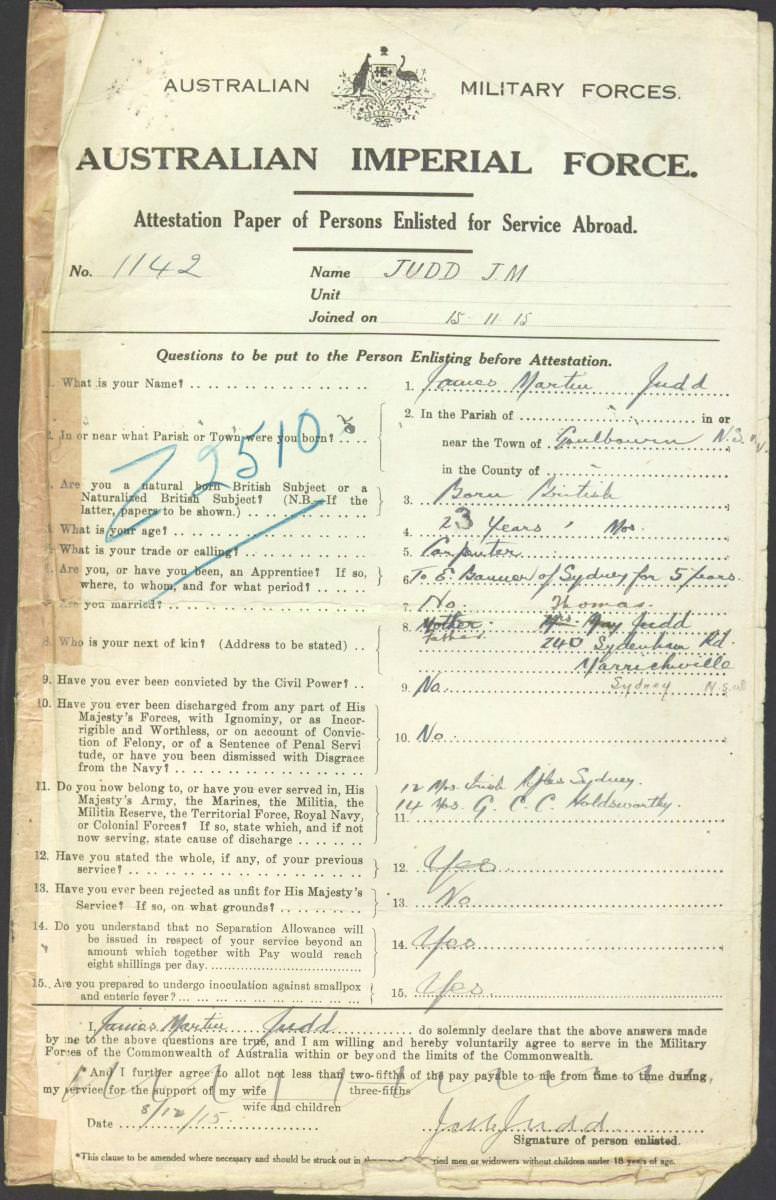 AUSTRALIAN MILITARY FORCES.
AUSTRALIAN IMPERIAL FORCE.
Attestation Paper of Persons Enlisted for Service Abroad.
No. 1142
Name JUDD J.M
Unit
Joined on 15 11 15
Questions to be put to the Person Enlisting before Attestation.
1. What is your Name? 1. James Martin Judd
2. In or near what Parish or Town were you born? 2. In the Parish of " in or
near the Town of Goulbourn N.S.W.
in the County of "
Z 2510
Are you a natural born British Subject or a
Naturalized British Subject? (N.B.—If the
latter, papers to be shown.) 3. Born British
What is your age? 4. 23 years Mos.
What is your trade or calling? 5. Carpenter
Are you, or have you been, an Apprentice? If so,
where, to whom, and for what period? 6. To E Banner of Sydney for 5 years.
Are you married? 7. No.
8. Who is your next of kin? (Address to be stated) 8. Mother Mrs May Judd
Father Thomas
240 Sydenham Rd
Marrickville
Sydney N.S.W
9. Have you ever been convicted by the Civil Power? 9. No.
10. Have you ever been discharged from any part of His
Majesty's Forces, with Ignominy, or as Incor-
rigible and Worthless, or on account of Convic-
tion of Felony, or of a Sentence of Penal Servi
tude, or have you been dismissed with Disgrace
from the Navy? 10. No.
11. Do you now belong to, or have you ever served in, His
Majesty's Army, the Marines, the Militia, the
Militia Reserve, the Territorial Force, Royal Navy,
or Colonial Forces? If so, state which, and if not
now serving, state cause of discharge 11. 12 Mos. Irish Rifles Sydney.
14 Mos. G. C. C. Holdsworthy.
12. Have you stated the whole, if any, of your previous
service? 12. Yes
13. Have you ever been rejected as unfit for His Majesty's
Service? If so, on what grounds? 13. No
14. Do you understand that no Separation Allowance will
be issued in respect of your service beyond an
amount which together with Pay would reach
eight shillings per day 14. Yes
15. Are you prepared to undergo inoculation against smallpox
and enteric fever? 15. Yes
I, James Martin Judd do solemnly declare that the above answers made
by me to the above questions are true, and I am willing and hereby voluntarily agree to serve in the Military
Forces of the Commonwealth of Australia within or beyond the limits of the Commonwealth.
*And I further agree to allot not less than two-fifths of the pay payable to me from time to time during
three-fifths
my service for the support of my wife
wife and children
Date 8/12/15. Judd
Signature of person enlisted.
*This clause to be amended where necessary and should be struck out in married men or widowers without children under 18 years of age.